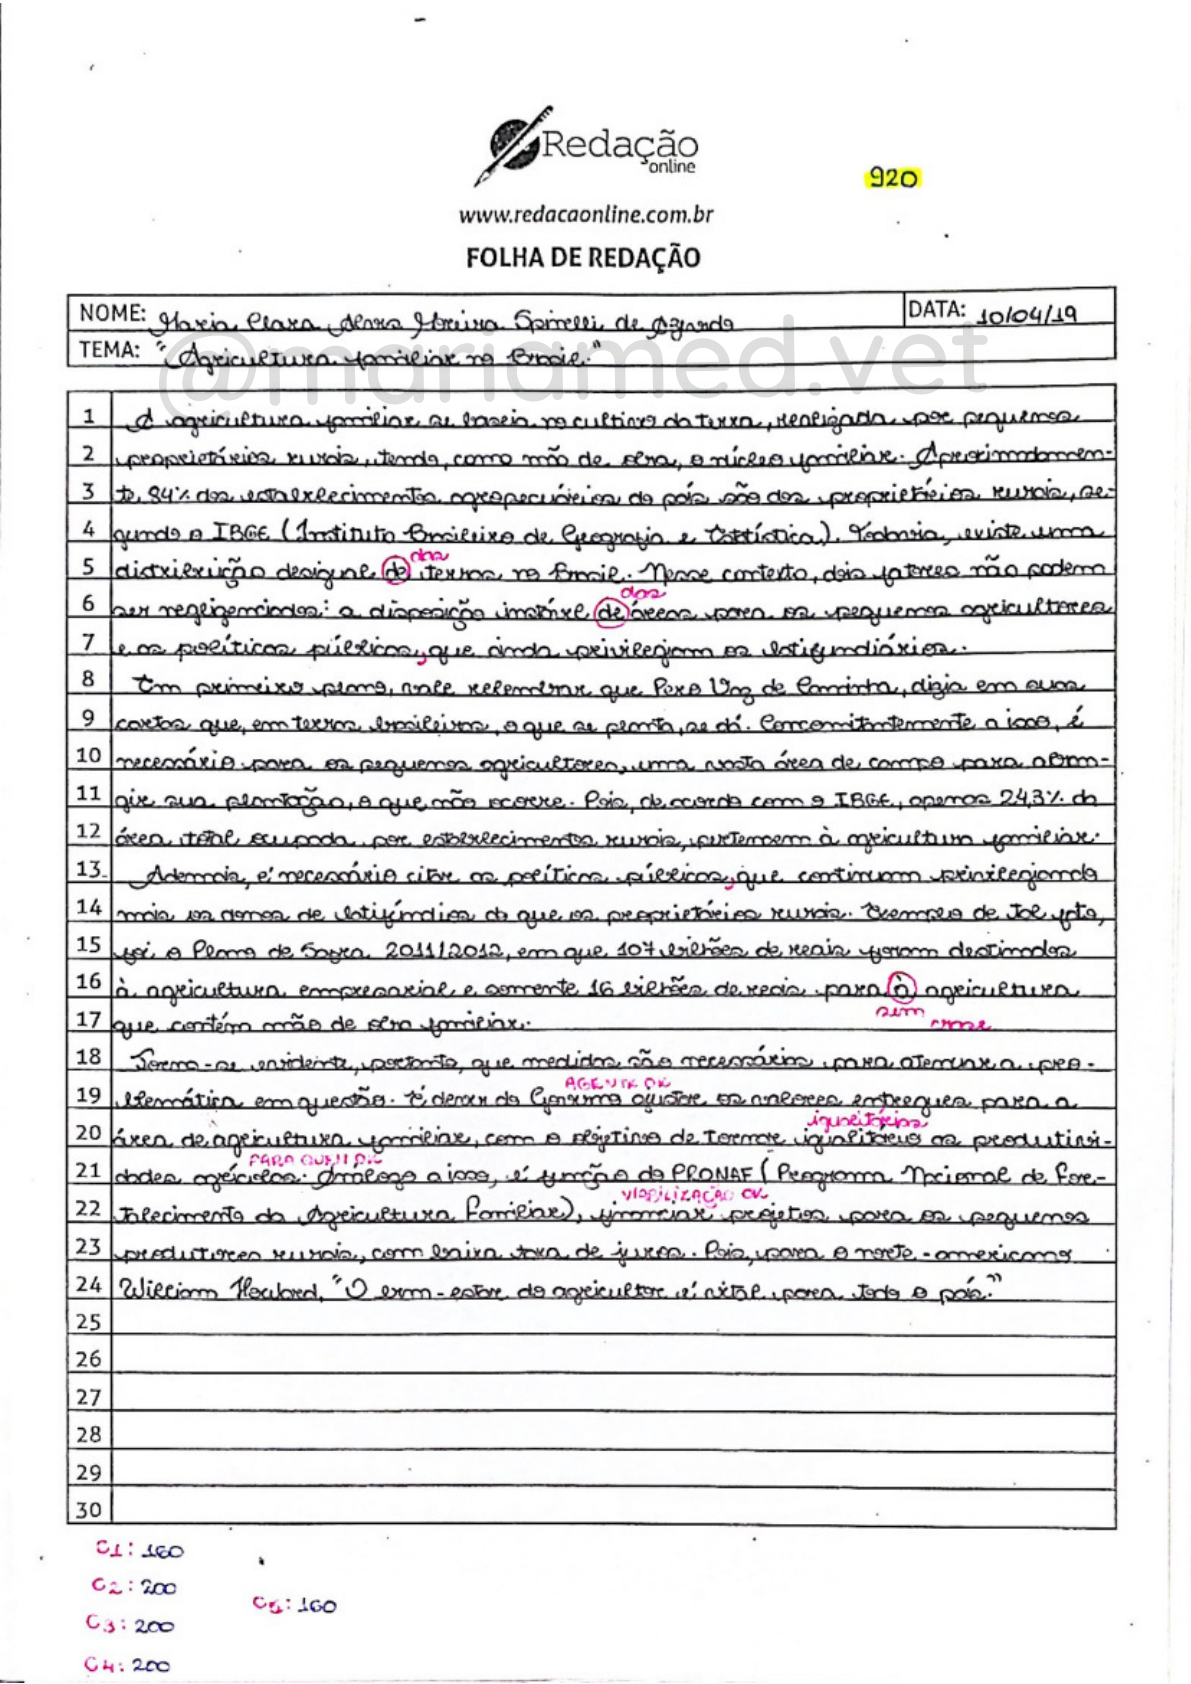 Redação
online
920
www.redacaonline.com.br
FOLHA DE REDAÇÃO
NOME: Maria Clara Moreira Spinelli de Azevedo
DATA: 10/04/19
TEMA: "Agricultura familiar no Brasil."
@mariamed.vet
1 A agricultura familiar se baseia no cultivo da terra, realizada por pequenos
2 proprietários rurais, tendo, como mão de obra, o núcleo familiar. Aproximadamen-
3 te, 84% dos estabelecimentos agropecuários do país são dos proprietários rurais, se-
4 gundo o IBGE (Instituto Brasileiro de Geografia e Estatística). Todavia, existe uma
das
5 distribuição desigual de terras no Brasil. Nesse contexto, dois fatores não podem
das
6 ser negligenciados: a disposição instável de áreas para os pequenos agricultores
7 e as políticas públicas, que ainda privilegiam os latifundiários.
8 Em primeiro plano, vale relembrar que Pero Vaz de Caminha, dizia em suas
9 cartas que, em terras brasileiras, o que se planta, se dá. Concomitantemente a isso, é
10 necessário para os pequenos agricultores, uma vasta área de campo para abran-
11 gir sua plantação, o que não ocorre. Pois, de acordo com o IBGE, apenas 24,3% da
12 área total ocupada por estabelecimentos rurais, pertencem à agricultura familiar.
13 Ademais, é necessário citar as políticas públicas, que continuam privilegiando
14 mais os donos de latifúndios do que os proprietários rurais. Exemplo de tal fato,
15 foi o Plano de Safra 2011/2012, em que 107 bilhões de reais foram destinados
16 à agricultura empresarial e somente 16 bilhões de reais para à agricultura
sem crase
17 que contém mão de obra familiar.
18 Torna-se evidente, portanto, que medidas são necessárias para atenuar a pro-
AGENTE OK
19 blemática em questão. É dever do Governo ajustar os valores entregues para a
igualitárias
20 área de agricultura familiar, com o objetivo de tornar igualitárias as produtivi-
PARA QUEM OK
21 dades agrícolas. Análogo a isso, é função do PRONAF (Programa Nacional de For-
VIABILIZAÇÃO OK
22 talecimento da Agricultura Familiar), financiar projetos para os pequenos
23 produtores rurais, com baixa taxa de juros. Pois, para o norte-americano
24 William "O bem-estar do agricultor é vital para todo o país."
25
26
27
28
29
30
C1: 160
C2: 200
C3: 200
C4: 200
C5: 160